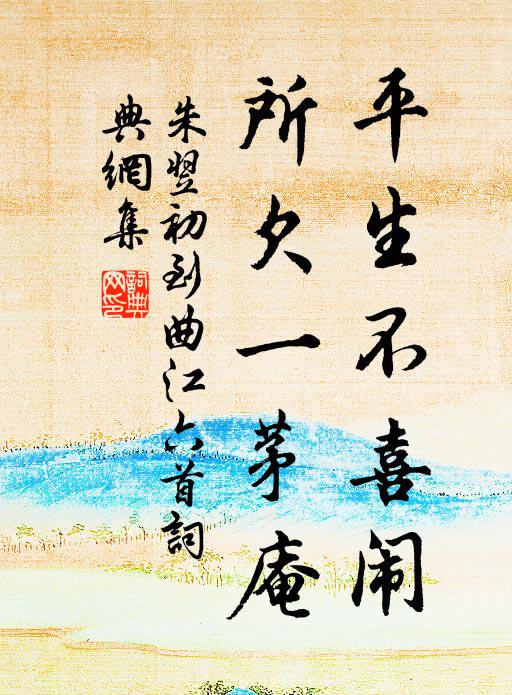 平生不喜闹
所欠一茅庵
朱翌初到曲江六首詞
典網集
詞典
网印